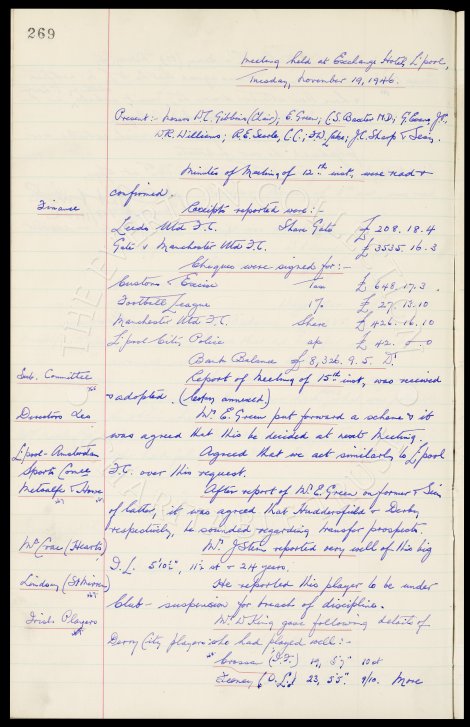 269
Meeting held at Exchange Hotel, L'pool,
Tuesday, November 19, 1946.
Present:- Messrs W.C. Gibbins (Chair); E. Green; C.S. Baxter M.D; G. Evans J.P.
W.R. Williams; R.E. Searle, C.C.; J.C. Sharp & Secy.
Minutes of Meeting of 12th inst. were read &
confirmed.
Finance
Receipts reported were:-
Leeds Utd F.C. Share Gate £ 208.18.4
Gate v Manchester Utd F.C. £ 3535.16.3
Cheques were signed for:-
Customs & Excise Tax £ 648.17.3
Football League 1% £ 27.13.10
Manchester Utd F.C. Share £ 426.16.10
L'pool City Police a/c £ 42.0.0
Bank Balance £ 8,326.9.5. Dr
Sub. Committee
Report of Meeting of 15th inst, was received
& adopted. (copy annexed)
Directors
Mr. E. Green put forward a scheme & it
was agreed that this be decided at next Meeting.
L'pool-Amsterdam
Sports
Agreed that we act similarly to L'pool
F.C. over this request.
Metcalfe & Howe
After report of Mr. E. Green on former & Secy
of latter, it was agreed that Huddersfield & Derby
respectively, be sounded regarding transfer prospects.
Mr. Crae (Hearts)
Mr. J. reported very well of this big
I.L. 5'10½", 11½ st & 24 years.
Lindsay (St Mirren)
He reported this player to be under
Club-suspension for breach of discipline.
Irish Players
Mr. D. King gave following details of
Derry City players who had played well:-
(I.F.) 19, 5'7" 10st
Feeney (O.L.) 23, 5'5" 9/10. More